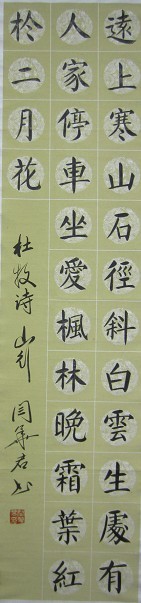 遠上寒山石徑斜白雲生處有
人家停車坐愛楓林晚霜葉紅
於二月花
杜牧诗 山行 闫华君书